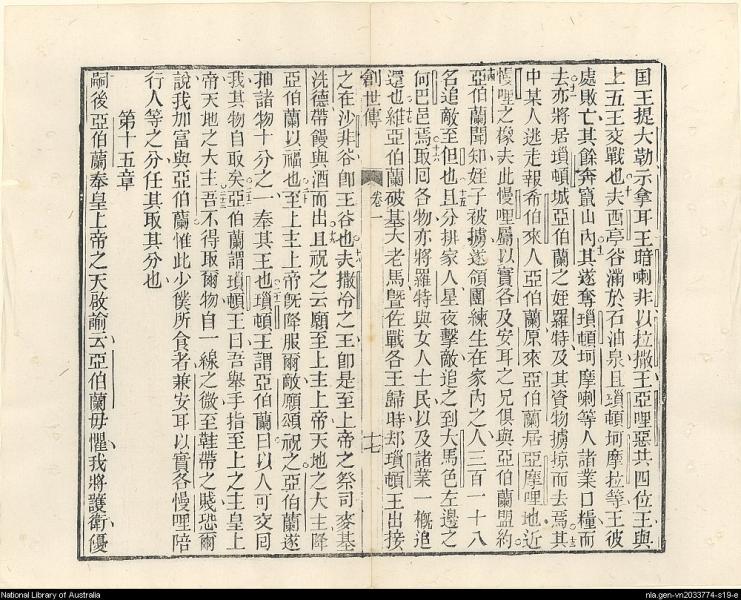 国王提大勒示拿耳王暗喇非以拉撒王亞哩惡共四位王與
上五王交戰也夫西亭谷滿於石油泉且瑣頓坷摩拉等王彼
處敗亡其餘奔竄山內其遂奪瑣頓坷摩喇等人諸業口糧而
去亦將居瑣頓城亞伯蘭之姪羅特及其資物擄掠而去焉其
中某人逃走報希伯來人亞伯蘭原來亞伯蘭居亞摩哩地近
慢哩之橡夫此慢哩屬以實各及安耳之兄俱與亞伯蘭盟約
亞伯蘭聞知姪子被擄遂領團練生在家內之人三百一十八
名追敵至但也且分排家人星夜擊敵追之到大馬色左邊之
何巴邑焉取囘各物亦將羅特與女人士民以及諸業一概追
還也維亞伯蘭破基大老馬暨佐戰各王歸時却瑣頓王出接
創世傳 卷一 十七
之在沙非谷卽王谷也夫撒冷之王卽是至上帝之祭司麥基
洗德帶饅與酒而出且祝之云願至上主上帝天地之大主降
亞伯蘭以福也至上主上帝旣降服爾敵願頌祝之亞伯蘭遂
抽諸物十分之一奉其王也瑣頓王謂亞伯蘭曰以人可交囘
我其物自取矣亞伯蘭謂瑣頓王曰吾舉手指至上之主皇上
帝天地之大主吾不得取爾物自一線之微至鞋帶之賤恐爾
說我加富與亞伯蘭惟此少僕所食者兼安耳以實各慢哩陪
行人等之分任其取其分也
第十五章
嗣後亞伯蘭奉皇上帝之天啟諭云亞伯蘭毋懼我將護衛優
National Library of Australia
nla.gen-vn2033774-s19-e